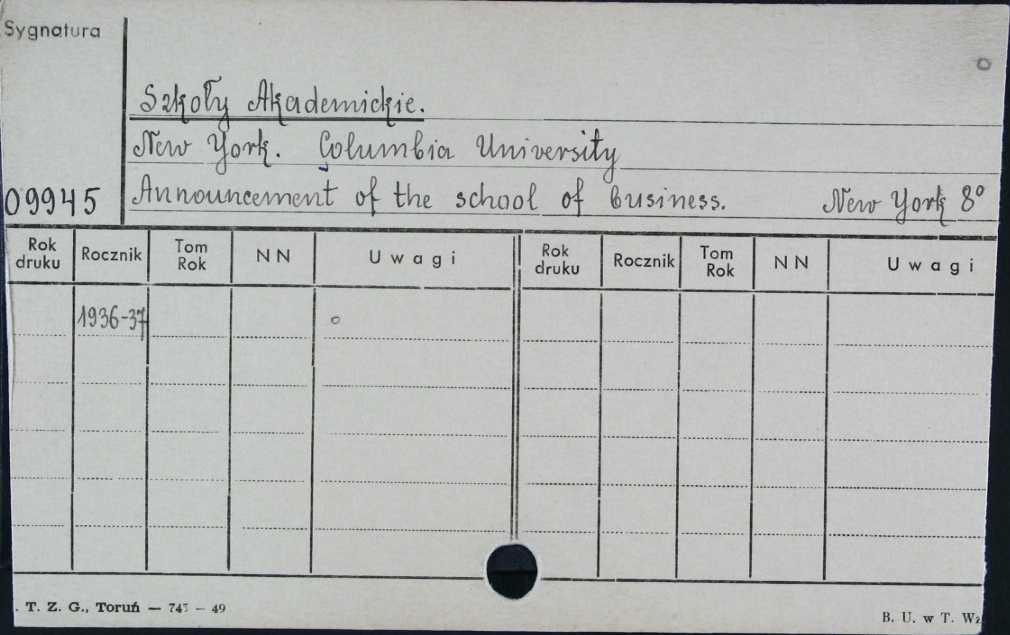 Sygnatura
Szkoły Akademickie.
New York. Columbia University
09945 Announcement of the school of business. New York 8°
Rok druku Rocznik Tom Rok NN Uwagi Rok druku Rocznik Tom Rok NN Uwagi
1936-37
. T. Z. G., Toruń — 745 — 49
B. U. w T. Wz